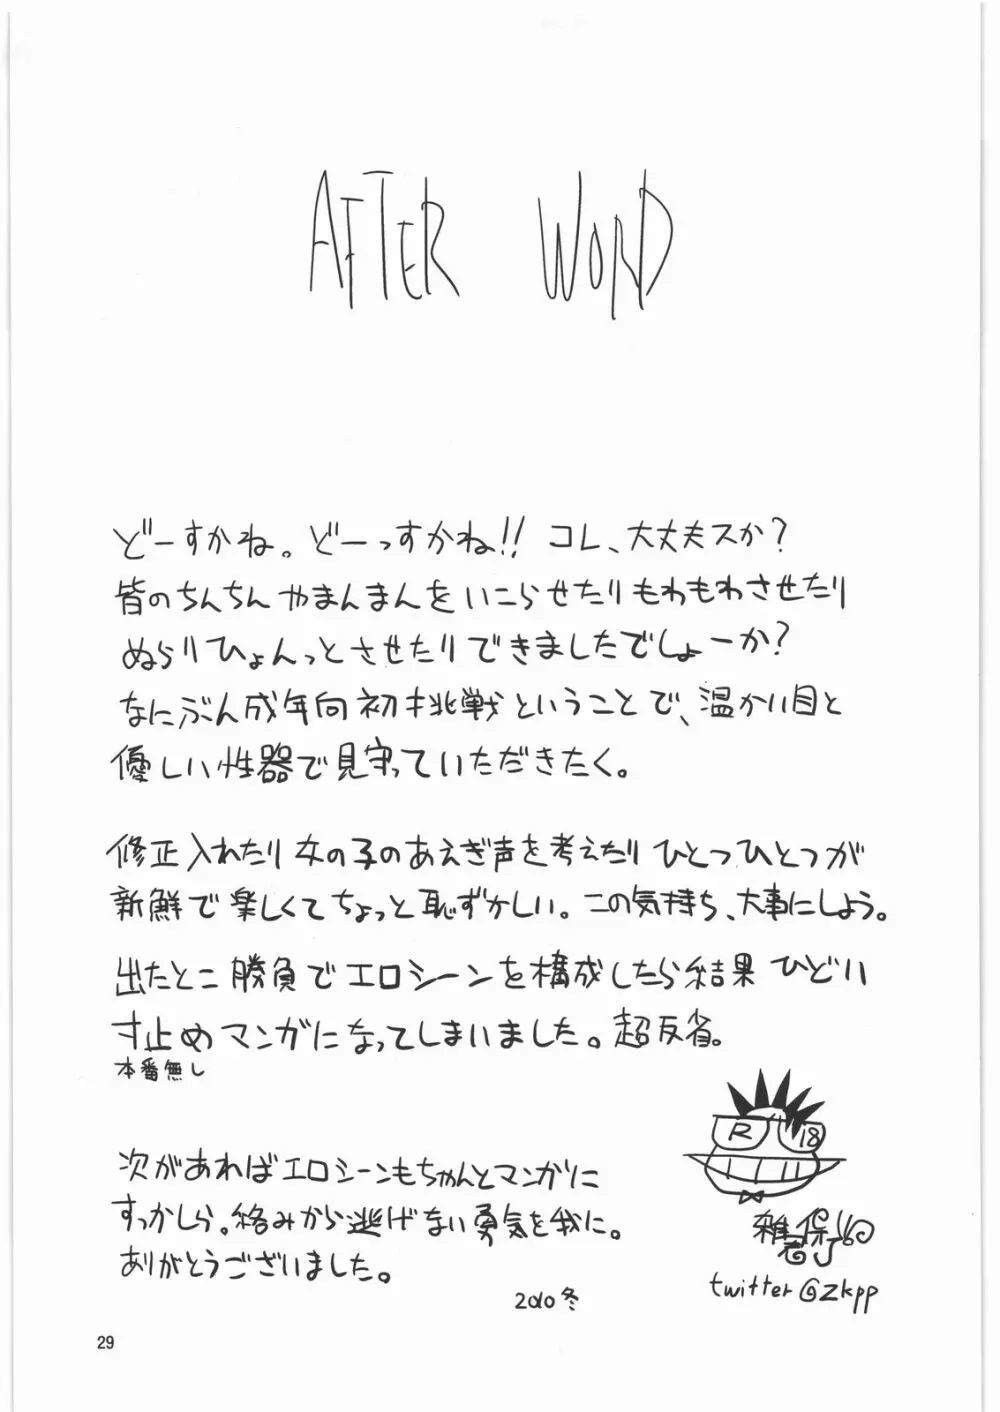 AFTER WORD
どーすかね。どーっすかね!! コレ、大丈夫スか?
皆のちんちんやまんまんをいこらせたりもわもわさせたり
ぬらりひょんっとさせたりできましたでしょーか?
なにぶん成年向初挑戦ということで、温かい目と
優しい性器で見守っていただきたく。
修正入れたり女の子のあえぎ声を考えたりひとつひとつが
新鮮で楽しくてちょっと恥ずかしい。この気持ち、大事にしよう。
出たとこ勝負でエロシーンを構成したら結果ひどい
寸止めマンガになってしまいました。超反省。
本番無し
R 18
次があればエロシーンもちゃんとマンガに
すっかしら。絡みから逃げない勇気を我に。
ありがとうございました。
2010冬
twitter@zkpp
29